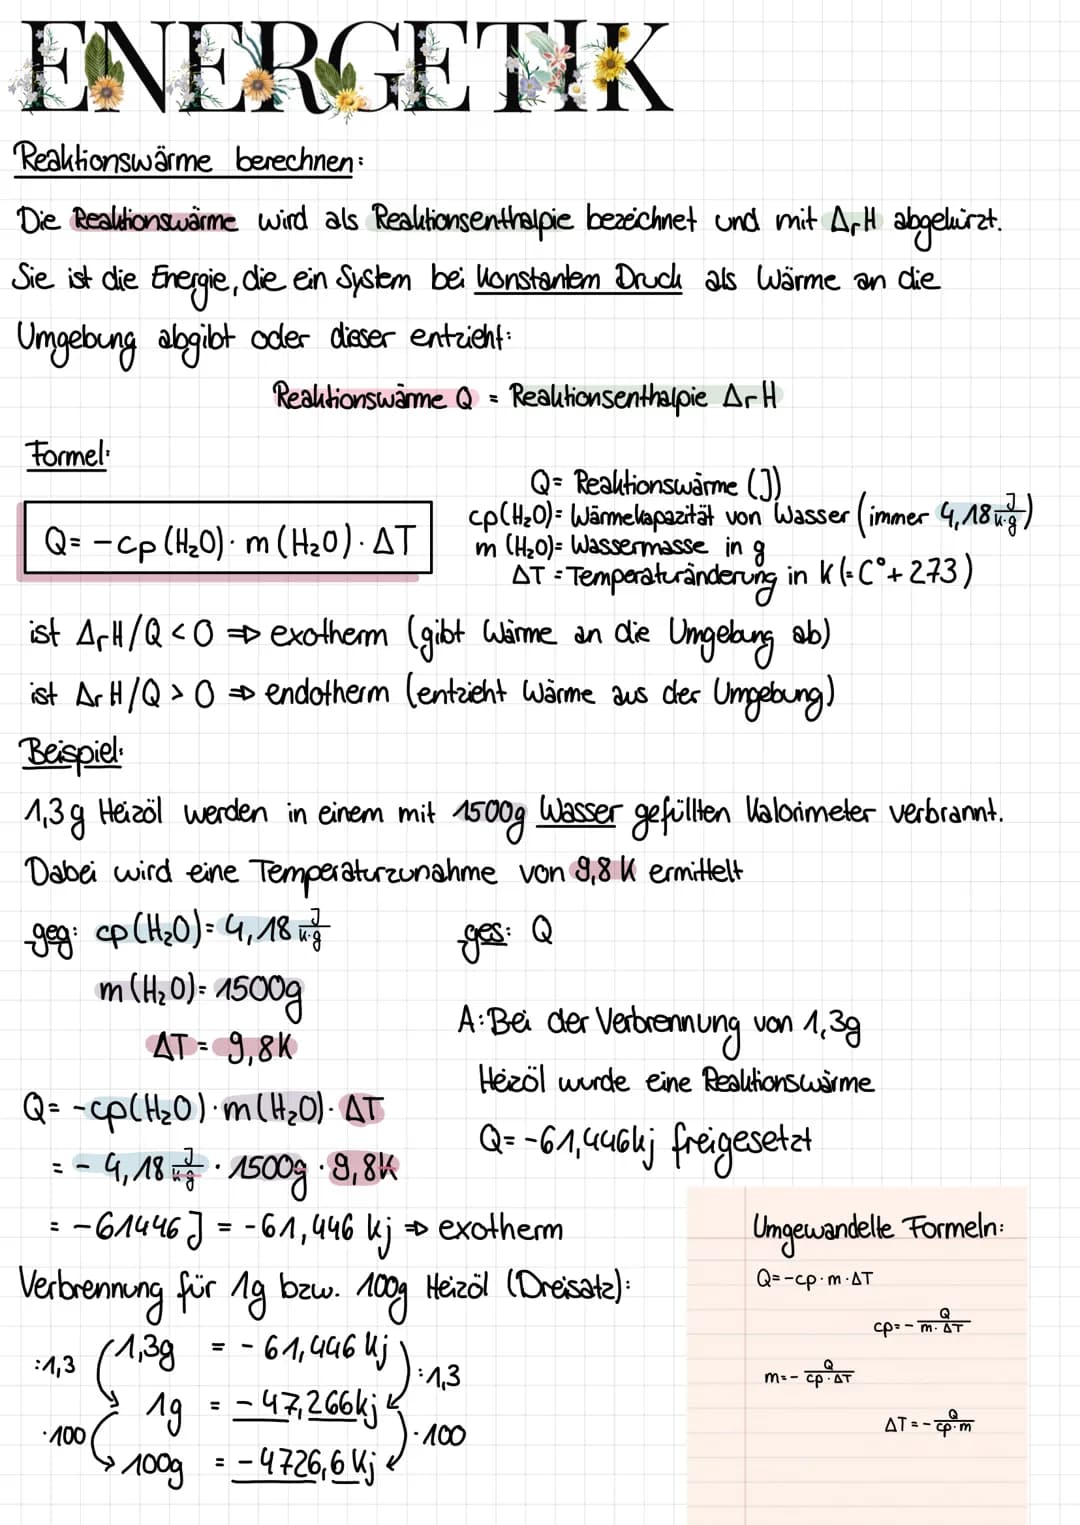 ENERGETIK
Reaktionswärme berechnen:
Die Reaktionswärme wird als Reaktionsenthalpie bezeichnet und mit ΔrH abgekürzt.
Sie ist die Energie, die ein System bei konstantem Druck als Wärme an die
Umgebung abgibt oder dieser entzieht:
Reaktionswärme Q = Reaktionsenthalpie ΔrH
Formel:
Q = -cp (H₂O) · m (H₂O) · ΔT
Q = Reaktionswärme (J)
cp(H₂O) = Wärmekapazität von Wasser (immer 4,18 J/K·g)
m (H₂O) = Wassermasse in g
ΔT = Temperaturänderung in K (= C° + 273)
ist ΔrH/Q < 0 ⇒ exotherm (gibt Wärme an die Umgebung ab)
ist ΔrH/Q > 0 ⇒ endotherm (entzieht Wärme aus der Umgebung)
Beispiel:
1,3g Heizöl werden in einem mit 1500g Wasser gefüllten Kalorimeter verbrannt.
Dabei wird eine Temperaturzunahme von 9,8 K ermittelt
geg: cp(H₂O) = 4,18 J/K·g
ges: Q
m (H₂O) = 1500g
ΔT = 9,8K
A: Bei der Verbrennung von 1,3g
Heizöl wurde eine Reaktionswärme
Q = -61,446kj freigesetzt
Q = -cp(H₂O) · m(H₂O) · ΔT
= - 4,18 J/K·g · 1500g · 9,8K
= -61446 J = -61,446 kj ⇒ exotherm
Verbrennung für 1g bzw. 100g Heizöl (Dreisatz):
:1,3 1,3g = - 61,446 kj :1,3
1g = - 47,266kj
·100 ·100
100g = - 4726,6 kj
Umgewandelte Formeln:
Q = -cp · m · ΔT
cp = - Q/m · ΔT
m = - Q/cp · ΔT
ΔT = - Q/cp · m